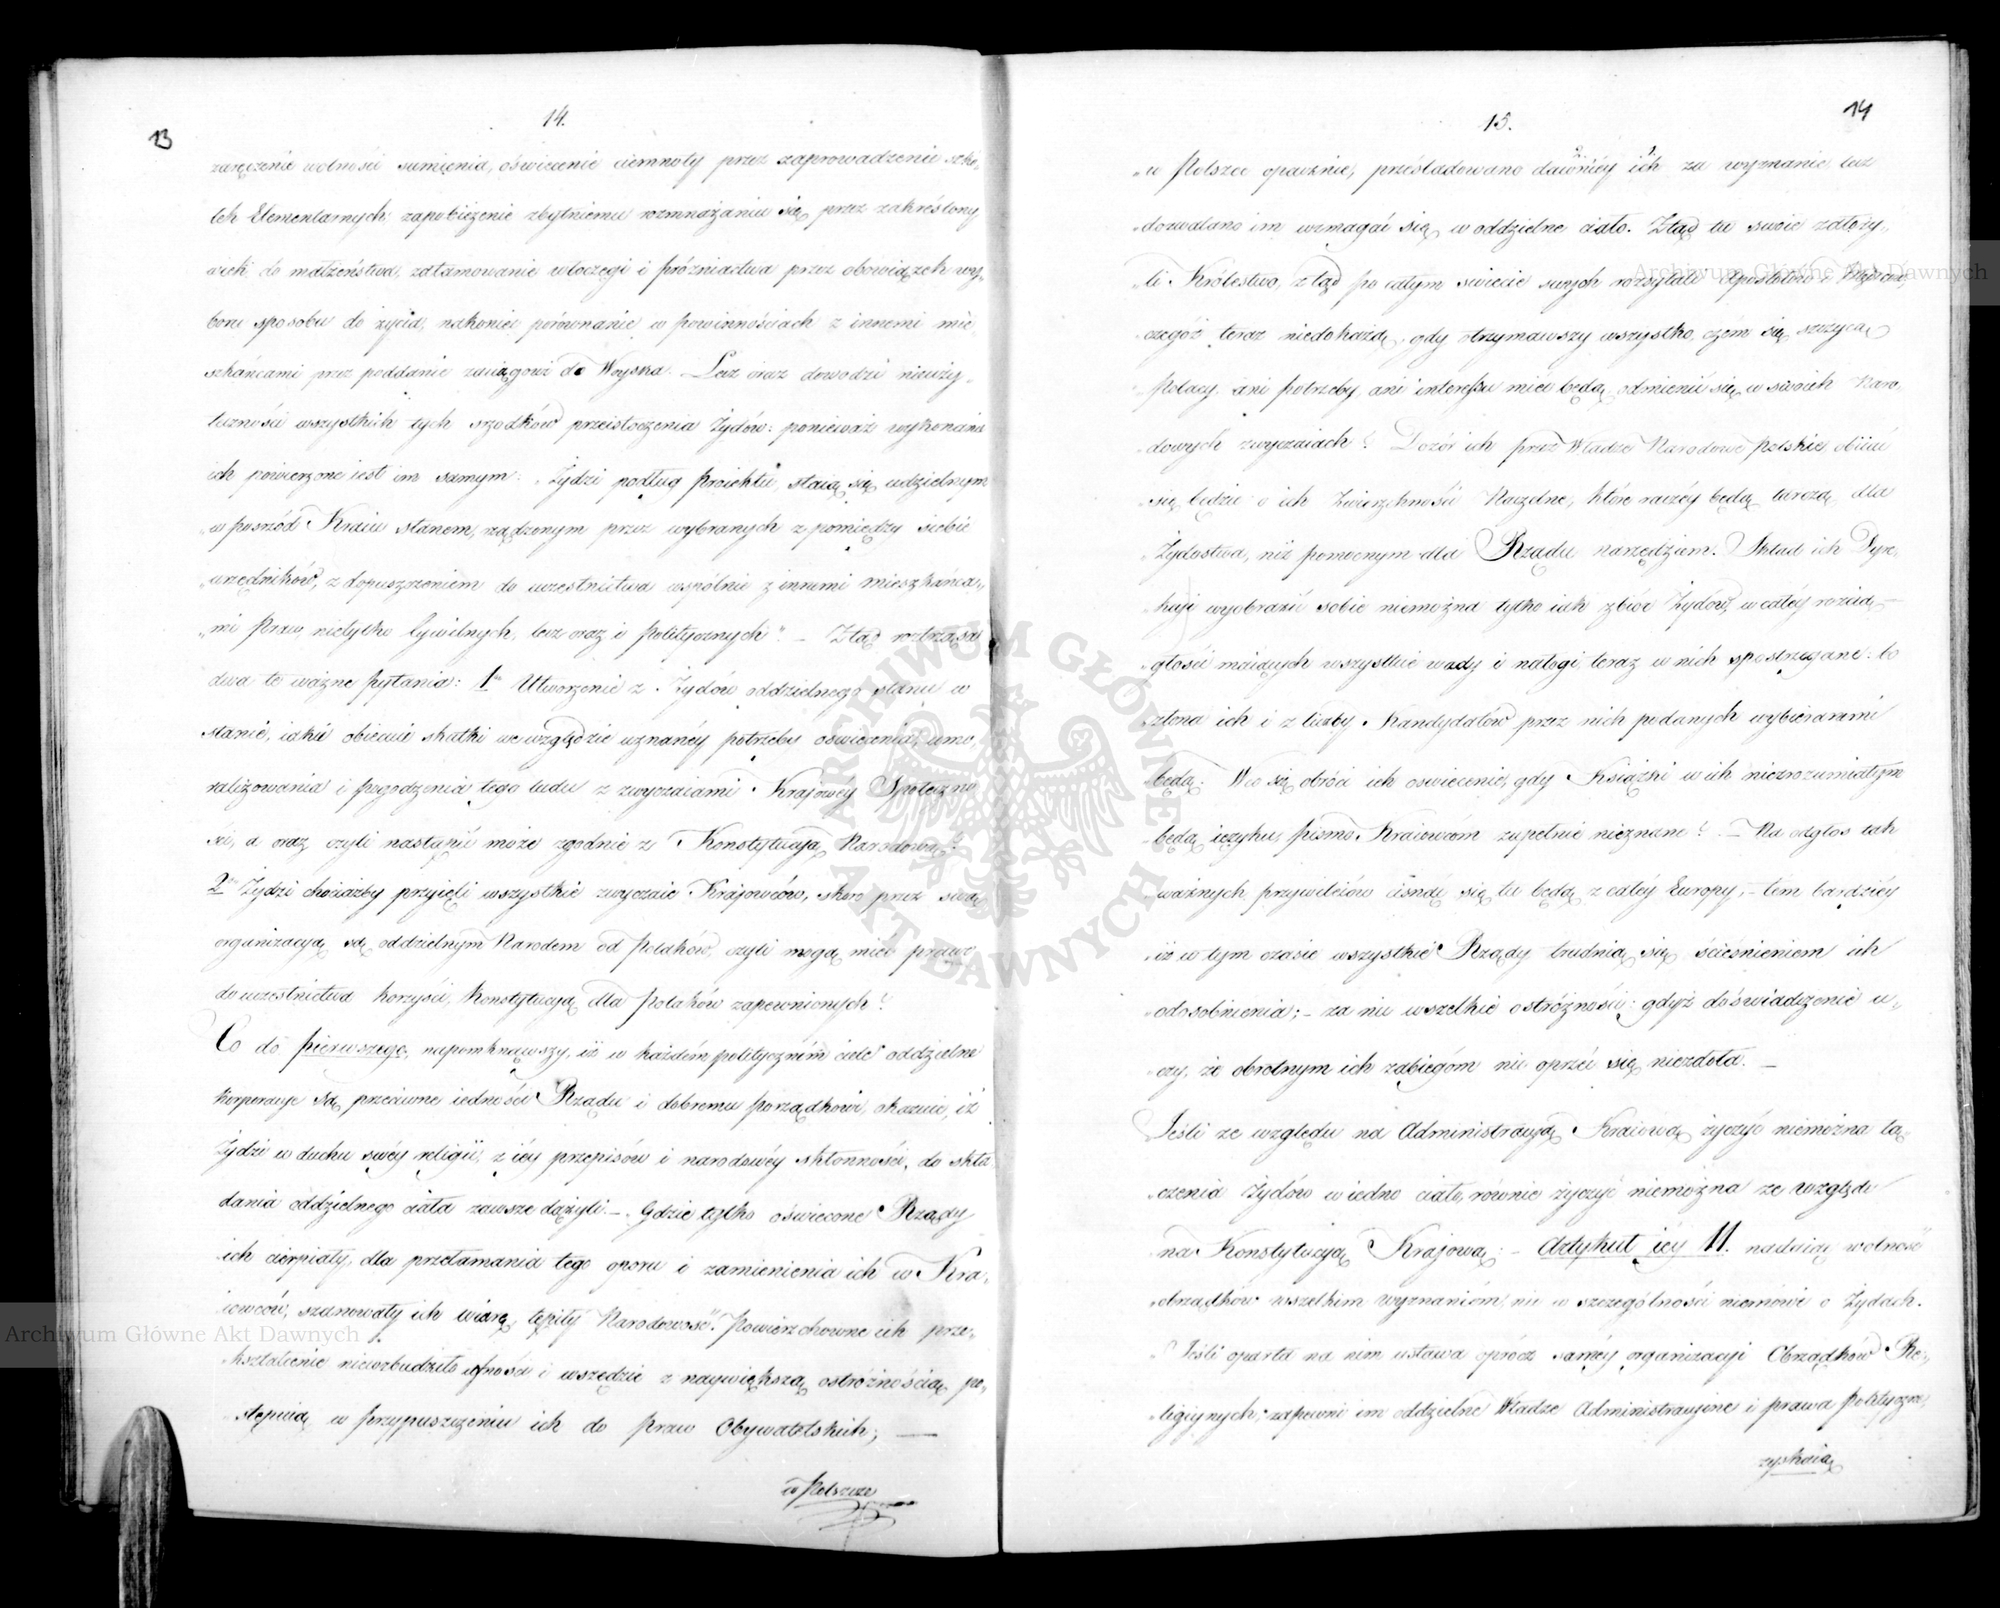 14.
13
zaręczenie wolności sumienia, oświecenie ciemnoty przez zaprowadzenie szkó-
łek Elementarnych, zapobieżenie zbytniemu rozmnażaniu się przez zakreślony
wiek do małżeństwa, zatamowanie włóczęgi i próżniactwa przez obowiązek wy-
boru sposobu do życia, nakoniec porównanie w powinnościach z innemi mie-
szkańcami przez poddanie zaciągowi do Woyska. Lecz oraz dowodzi nieuży-
teczności wszystkich tych szodków przeistoczenia Żydów: ponieważ wykonanie
ich powierzone iest im samym: „Żydzi podług Proiektu, staią się udzielnym
„w pośrzód Kraiu stanem, rządzonym przez wybranych z pomiędzy siebie
„urzędników, z dopuszczeniem do uczestnictwa wspólnie z innemi mieszkańca-
„mi Praw nietylko Cywilnych, lecz oraz i Politycznych". – Ztąd roztrząsa
dwa te ważne pytania: 1e Utworzenie z Żydów oddzielnego stanu w
stanie, iakie obiecuie skutki we względzie uznanéy potrzeby oświecenia, umo-
ralizowania i pogodzenia tego ludu z zwyczaiami Krajowéy Społeczno
ści, a oraz czyli nastąpić może zgodnie z Konstytucyą Narodową?
2e Żydzi chociażby przyięli wszystkie zwyczaie Kraiowców, skoro przez swą
organizacyą są oddzielnym Narodem od Polaków, czyli mogą mieć prawo
do uczestnictwa korzyści, Konstytucyą dla Polaków zapewnionych?
Co do pierwszego, napomknąwszy, iż w każdém polityczném ciele oddzielne
korporacye są przeciwne iedności Rządu i dobremu porządkowi, okazuie, iż
Żydzi w duchu swéy religii, z iéy przepisów i narodowéy skłonności, do skła
dania oddzielnego ciała zawsze dążyli. – „Gdzie tylko oświecone Rządy
„ich cierpiały, dla przełamania tego oporu i zamienienia ich w Kra-
„iowców, szanowały ich wiarę, tępiły Narodowość. Powierzchowne ich prze-
„kształcenie niewzbudziło ufności i wszędzie z naywiększą ostróżnością po-
„stępuią w przypuszczeniu ich do praw Obywatelskich; —
w Polszcze
15.
14
„w Polszce opacznie, prześladowano dawniéy ich za wyznanie, lecz
„dozwalano im wzmagać się w oddzielne ciało. Ztąd tu swoie założy-
„li Królestwo, ztąd po całym świecie swych rozsyłali Apostołów i
„czegóż teraz niedokażą, gdy otrzymawszy wszystko, czém się szczycą
„Polacy, ani potrzeby, ani interessu mieć będą odmienić się w swoich Naro
„dowych zwyczaiach? Dozór ich przez Władze Narodowe polskie, obiiać
„się będzie o ich Zwierzchności Naczelne, które raczéy będą tarczą dla
„Żydostwa, niż pomocnym dla Rządu narzędziem. Skład ich Dyre-
„kcyi wyobrazić sobie niemożna tylko iak zbiór Żydów, w całéy rozcią-
„głości maiących wszystkie wady i nałogi teraz w nich spostrzegane: bo
„członki ich i z liczby Kandydatów przez nich podanych wybieranemi
„będą. W co się obróci ich oświecenie, gdy Książki w ich niezrozumiałym
„będą ięzyku, pismo Kraiowcom zupełnie nieznane? – Na odgłos tak
„ważnych przywileiów cisnąć się tu będą z całéy Europy, – tem bardziéy
„iż w tym czasie wszystkie Rządy trudnią się ścieśnieniem ich
„odosobnienia; – za nic wszelkie ostróżności: gdyż doświadczenie u-
„czy, że obrotnym ich zabiegóm nic oprzéć się niezdoła. —
Jeśli ze względu na Administracyą Kraiową życzyć niemożna łą-
„czenia Żydów w iedno ciało, równie życzyć niemożna ze względu
„na Konstytucyą Krajową: – Artykuł iéy 11. nadaiąc wolność
„obrządków wszelkim wyznaniom, nic w szczególności niemówi o Żydach.
„Jeśli oparta na nim ustawa oprócz saméy organizacyi Obrządków Re-
„ligiynych, zapewni im oddzielne Władze Administracyine i prawa polityczne,
zyskaią
Archiwum Główne Akt Dawnych
Archiwum Główne Akt Dawnych
ARCHIWUM GŁÓWNE AKT DAWNYCH